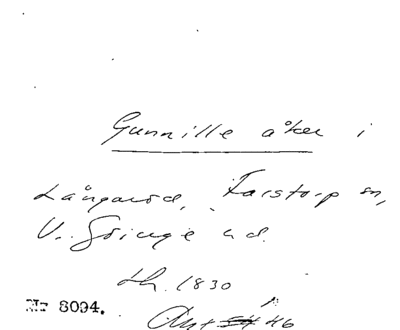 Gunnille åker i
Långaröd, Farstorp sn,
V. Göinge hd.
th. 1830
Nr 8094.